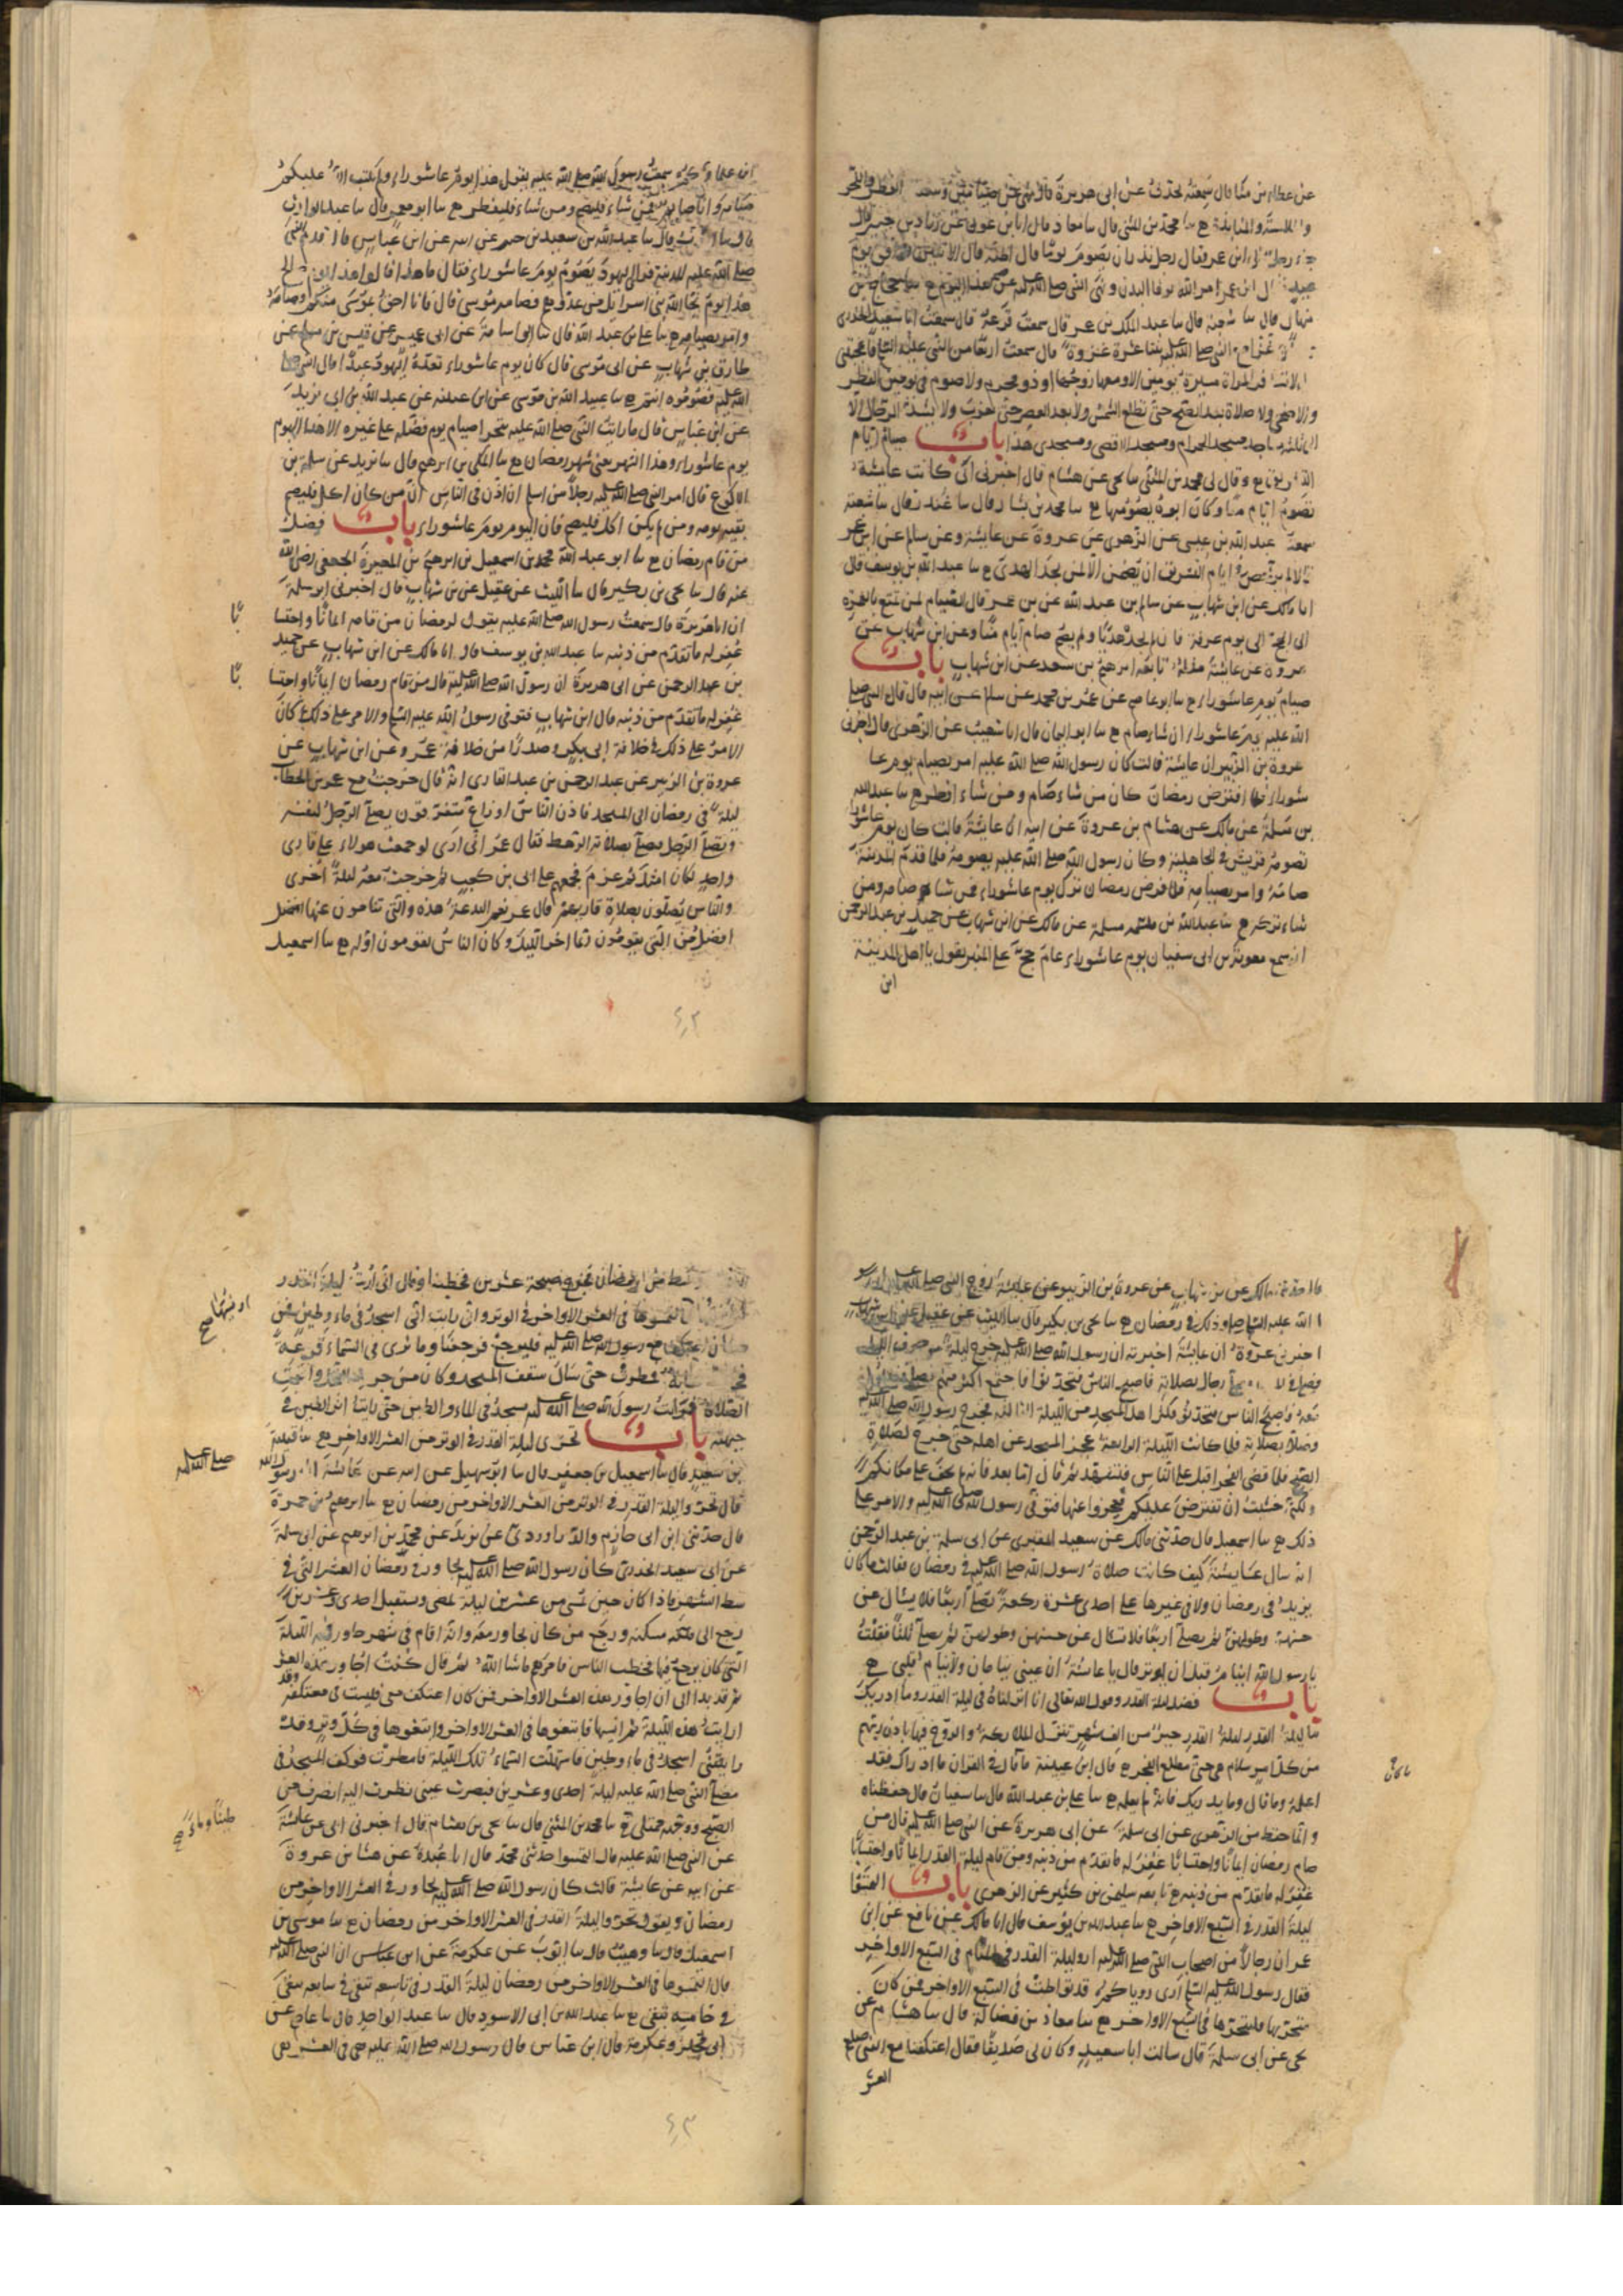 عن عطا بن مينا قال سمعته يحدث عن ابى هريرة قال نهى عن صيامين وبيعتين الفطر والنحر
والملامسة والمنابذة ح سا محمد بن المثنى قال سا معاذ قال انا ابن عون عن زياد بن جبير قال
جاء رجل الى ابن عمر فقال رجل نذر ان يصوم يوما قال اظنه قال الاثنين فوافق يوم
عيد فقال ابن عمر امر الله بوفا النذر ونهى النبى صلى الله عليه عن صوم هذا اليوم ح سا حجاج بن
منهال قال سا شعبة قال سا عبد الملك بن عمر قال سمعت قزعة قال سمعت ابا سعيد الخدرى
غزا مع النبى صلى الله عليه ثنتا عشرة غزوة قال سمعت اربعا من النبى عليه السلم فاعجبتنى
لا تسافر المراة مسيرة يومين الا ومعها زوجها او ذو محرم ولا صوم فى يومين الفطر
والاضحى ولا صلاة بعد الصبح حتى تطلع الشمس ولا بعد العصر حتى تغرب ولا يشد الرحال الا
الى ثلثة مساجد مسجد الحرام ومسجد الاقصى ومسجدى هذا باب صيام ايام
التشريق ح وقال لى محمد بن المثنى سا يحيى عن هشام قال اخبرنى ابى كانت عايشة
تصوم ايام منا وكان ابوه يصومها ح سا محمد بن بشار قال سا غندر قال سا شعبة
سمعت عبد الله بن عيسى عن الزهرى عن عروة عن عايشة وعن سالم عن ابن عمر
قالا لم يرخص فى ايام التشريق ان يصمن الا لمن لم يجد الهدى ح سا عبد الله بن يوسف قال
انا مالك عن ابن شهاب عن سالم بن عبد الله عن بن عمر قال الصيام لمن تمتع بالعمرة
الى الحج الى يوم عرفة فان لم يجد هديا ولم يصم صام ايام منا وعن ابن شهاب عن
عروة عن عايشة مثله تابعه ابرهيم بن سعد عن ابن شهاب باب
صيام يوم عاشوراء ح سا ابو عاصم عن عمر بن محمد عن سالم عن ابيه قال قال النبى صلى
الله عليه يوم عاشوراء ان شاء صام ح سا ابو اليمان قال انا شعيب عن الزهرى قال اخبرنى
عروة بن الزبير ان عايشة قالت كان رسول الله صلى الله عليه امر بصيام يوم عا
شوراء فلما افترض رمضان كان من شاء صام ومن شاء افطر ح سا عبد الله
بن مسلمة عن مالك عن هشام بن عروة عن ابيه ان عايشة قالت كان يوم عاشورا
تصومه قريش فى الجاهلية وكان رسول الله صلى الله عليه يصومه فلما قدم المدينة
صامه وامر بصيامه فلما فرض رمضان ترك يوم عاشوراء فمن شاء صامه ومن
شاء تركه ح سا عبد الله بن مسلمة عن مالك عن ابن شهاب عن حميد بن عبد الرحمن
انه سمع معوية بن ابى سفيان يوم عاشوراء عام حج على المنبر يقول يا اهل المدينة
اين
اين علماؤكم سمعت رسول الله صلى الله عليه يقول هذا يوم عاشوراء ولم يكتب الله عليكم
صيامه وانا صايم فمن شاء فليصم ومن شاء فليفطر ح سا ابو معمر قال سا عبد الوارث
قال سا ايوب قال سا عبد الله بن سعيد بن جبير عن ابيه عن ابن عباس قال قدم النبى
صلى الله عليه المدينة فراى اليهود يصوم يوم عاشوراء فقال ما هذا قالوا هذا يوم صالح
هذا يوم نجا الله بنى اسرايل من عدوهم فصامه موسى قال فانا احق بموسى منكم فصامه
وامر بصيامه ح سا على بن عبد الله قال سا ابو اسامة عن ابى عميس عن قيس بن مسلم عن
طارق بن شهاب عن ابى موسى قال كان يوم عاشوراء تعده اليهود عيدا قال النبى صلى
الله عليه فصوموه انتم ح سا عبيد الله بن موسى عن ابن عيينه عن عبد الله بن ابى يزيد
عن ابن عباس قال ما رايت النبى صلى الله عليه يتحرا صيام يوم فضله على غيره الا هذا اليوم
يوم عاشوراء وهذا الشهر يعنى شهر رمضان ح سا المكى بن ابرهيم قال سا يزيد عن سلمة بن
الاكوع قال امر النبى صلى الله عليه رجلا من اسلم ان اذن فى الناس ان من كان اكل فليصم
بقية يومه ومن لم يكن اكل فليصم فان اليوم يوم عاشوراء باب فضل
من قام رمضان ح سا ابو عبد الله محمد بن اسمعيل بن ابرهيم بن المغيرة الجعفى رضى الله
عنه قال سا يحيى بن بكير قال سا الليث عن عقيل عن بن شهاب قال اخبرنى ابو سلمة
ان ابا هريرة قال سمعت رسول الله صلى الله عليه يقول لرمضان من قامه ايمانا واحتسا
بًا
غفر له ما تقدم من ذنبه سا عبد الله بن يوسف قال انا مالك عن ابن شهاب عن حميد
بن عبد الرحمن عن ابى هريرة ان رسول الله صلى الله عليه قال من قام رمضان ايمانا واحتسا
بًا
غفر له ما تقدم من ذنبه قال ابن شهاب فتوفى رسول الله عليه السلم والامر على ذلك ثم كان
الامر على ذلك فى خلافة ابى بكر وصدرا من خلافة عمر وعن ابن شهاب عن
عروة بن الزبير عن عبد الرحمن بن عبد القارى انه قال خرجت مع عمر بن الخطاب
ليلة فى رمضان الى المسجد فاذا الناس اوزاع متفرقون يصلى الرجل لنفسه
ويصلى الرجل فيصلى بصلاته الرهط فقال عمر انى ارى لو جمعت هولاء على قارى
واحد لكان امثل ثم عزم فجمعهم على ابى بن كعب ثم خرجت معه ليلة اخرى
والناس يصلون بصلاة قاريهم قال عمر نعم البدعة هذه والتى تنامون عنها افضل
افضل من التى يقومون يريد اخر الليل وكان الناس يقومون اوله ح سا اسمعيل
قال حدثنى مالك عن بن شهاب عن عروة بن الزبير عن عايشة زوج النبى صلى الله عليه ان رسو
ل الله عليه السلم صلى وذلك فى رمضان ح سا يحيى بن بكير قال سا الليث عن عقيل عن ابن شهاب
اخبرنى عروة ان عايشة اخبرته ان رسول الله صلى الله عليه خرج ليلة من جوف الليل
فصلى رجال بصلاته فاصبح الناس فتحدثوا فاجتمع اكثر منهم
معه فاصبح الناس فتحدثوا فكثر اهل المسجد من الليلة الثالثة فخرج رسول الله صلى الله عليه
وصلوا بصلاته فلما كانت الليلة الرابعة عجز المسجد عن اهله حتى خرج لصلاة
الصبح فلما قضى الفجر اقبل على الناس فتشهد ثم قال اما بعد فانه لم يخف على مكانكم
ولكنى خشيت ان تفترض عليكم فتعجزوا عنها فتوفى رسول الله صلى الله عليه والامر على
ذلك ح سا اسمعيل قال حدثنى مالك عن سعيد المقبرى عن ابى سلمة بن عبد الرحمن
انه سال عايشة كيف كانت صلاة رسول الله صلى الله عليه فى رمضان فقالت ما كان
يزيد فى رمضان ولا فى غيرها على احدى عشرة ركعة يصلى اربعا فلا تسال عن
حسنهن وطولهن ثم يصلى اربعا فلا تسال عن حسنهن وطولهن ثم يصلى ثلثا فقلت
يا رسول الله اتنام قبل ان توتر قال يا عايشة ان عينى تنامان ولا ينام قلبى ح
باب فضل ليلة القدر وقول الله تعالى انا انزلناه فى ليلة القدر وما ادريك
ما ليلة القدر ليلة القدر خير من الف شهر تنزل الملائكة والروح فيها باذن ربهم
من كل امر سلام هى حتى مطلع الفجر ح قال ابن عيينة ما كان فى القران ما ادراك فقد
اعلمه وما قال وما يدريك فانه لم يعلمه ح سا على بن عبد الله قال سا سفيان قال حفظناه
وانما حفظ من الزهرى عن ابى سلمة عن ابى هريرة عن النبى صلى الله عليه قال من
صام رمضان ايمانا واحتسابا غفر له ما تقدم من ذنبه ومن قام ليلة القدر ايمانا واحتسابا
غفر له ما تقدم من ذنبه ح تابعه سليمن بن كثير عن الزهرى باب التمسوا
ليلة القدر فى السبع الاواخر ح سا عبد الله بن يوسف قال انا مالك عن نافع عن ابن
عمر ان رجالا من اصحاب النبى صلى الله عليه اروا ليلة القدر فى المنام فى السبع الاواخر
فقال رسول الله عليه السلم ارى روياكم قد تواطت فى السبع الاواخر فمن كان
متحريها فليتحرها فى السبع الاواخر ح سا معاذ بن فضالة قال سا هشام عن
يحيى عن ابى سلمة قال سالت ابا سعيد وكان لى صديقا فقال اعتكفنا مع النبى صلعم
العشر
الاوسط من رمضان فخرج صبيحة عشرين فخطبنا وقال انى اريت ليلة القدر
او نسيتها صح
فالتمسوها فى العشر الاواخر فى الوتر وانى رايت انى اسجد فى ماء وطين فمن
كان اعتكف مع رسول الله صلى الله عليه فليرجع فرجعنا وما نرى فى السماء قزعة
فمطرت حتى سال سقف المسجد وكان من جريد النخل واقيمت
الصلاة فرايت رسول الله صلى الله عليه يسجد فى الماء والطين حتى رايت اثر الطين فى
جبهته باب تحرى ليلة القدر فى الوتر من العشر الاواخر ح سا قتيبة
بن سعيد قال سا اسمعيل بن جعفر قال سا ابو سهيل عن ابيه عن عايشة ان رسول الله
صلى الله عليه
قال تحروا ليلة القدر فى الوتر من العشر الاواخر من رمضان ح سا ابرهيم بن حمزة
قال حدثنى ابن ابى حازم والدراوردى عن يزيد عن محمد بن ابرهيم عن ابى سلمة
عن ابى سعيد الخدرى كان رسول الله صلى الله عليه يجاور فى رمضان العشر التى فى
وسط الشهر فاذا كان حين يمسى من عشرين ليلة تمضى ويستقبل احدى وعشرين
رجع الى مسكنه ورجع من كان يجاور معه وانه اقام فى شهر جاور فيه الليلة
التى كان يرجع فيها فخطب الناس فامرهم ما شا الله ثم قال كنت اجاور هذه العشر
ثم قد بدا لى ان اجاور هذه العشر الاواخر فمن كان اعتكف معى فليثبت فى معتكفه وقد
اريت هذه الليلة ثم انسيتها فابتغوها فى العشر الاواخر وابتغوها فى كل وتر وقد
رايتنى اسجد فى ماء وطين فاستهلت السماء تلك الليلة فامطرت فوكف المسجد فى
مصلى النبى صلى الله عليه ليلة احدى وعشرين فبصرت عينى نظرت اليه انصرف من
الصبح ووجهه ممتلى ح سا محمد بن المثنى قال سا يحيى بن هشام قال اخبرنى ابى عن عايشة
طينا وماء صح
عن النبى صلى الله عليه قال التمسوا حدثنى محمد قال انا عبدة عن هشام بن عروة
عن ابيه عن عايشة قالت كان رسول الله صلى الله عليه يجاور فى العشر الاواخر من
رمضان ويقول تحروا ليلة القدر فى العشر الاواخر من رمضان ح سا موسى بن
اسمعيل قال سا وهيب قال سا ايوب عن عكرمة عن ابن عباس ان النبى صلى الله عليه
قال التمسوها فى العشر الاواخر من رمضان ليلة القدر فى تاسعه تبقى فى سابعه تبقى
فى خامسه تبقى ح سا عبد الله بن ابى الاسود قال سا عبد الواحد قال سا عاصم عن
ابى مجلز وعكرمة قال ابن عباس قال رسول الله صلى الله عليه هى فى العشر هى